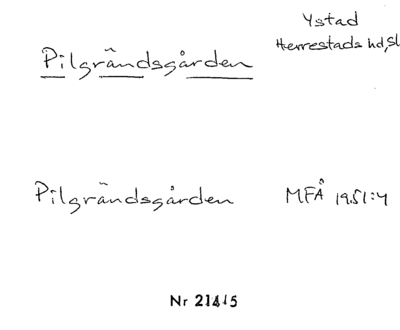 Pilgrändsgården
Ystad
Herrestads hd, Sk
Pilgrändsgården MFÅ 1951:4
Nr 21415